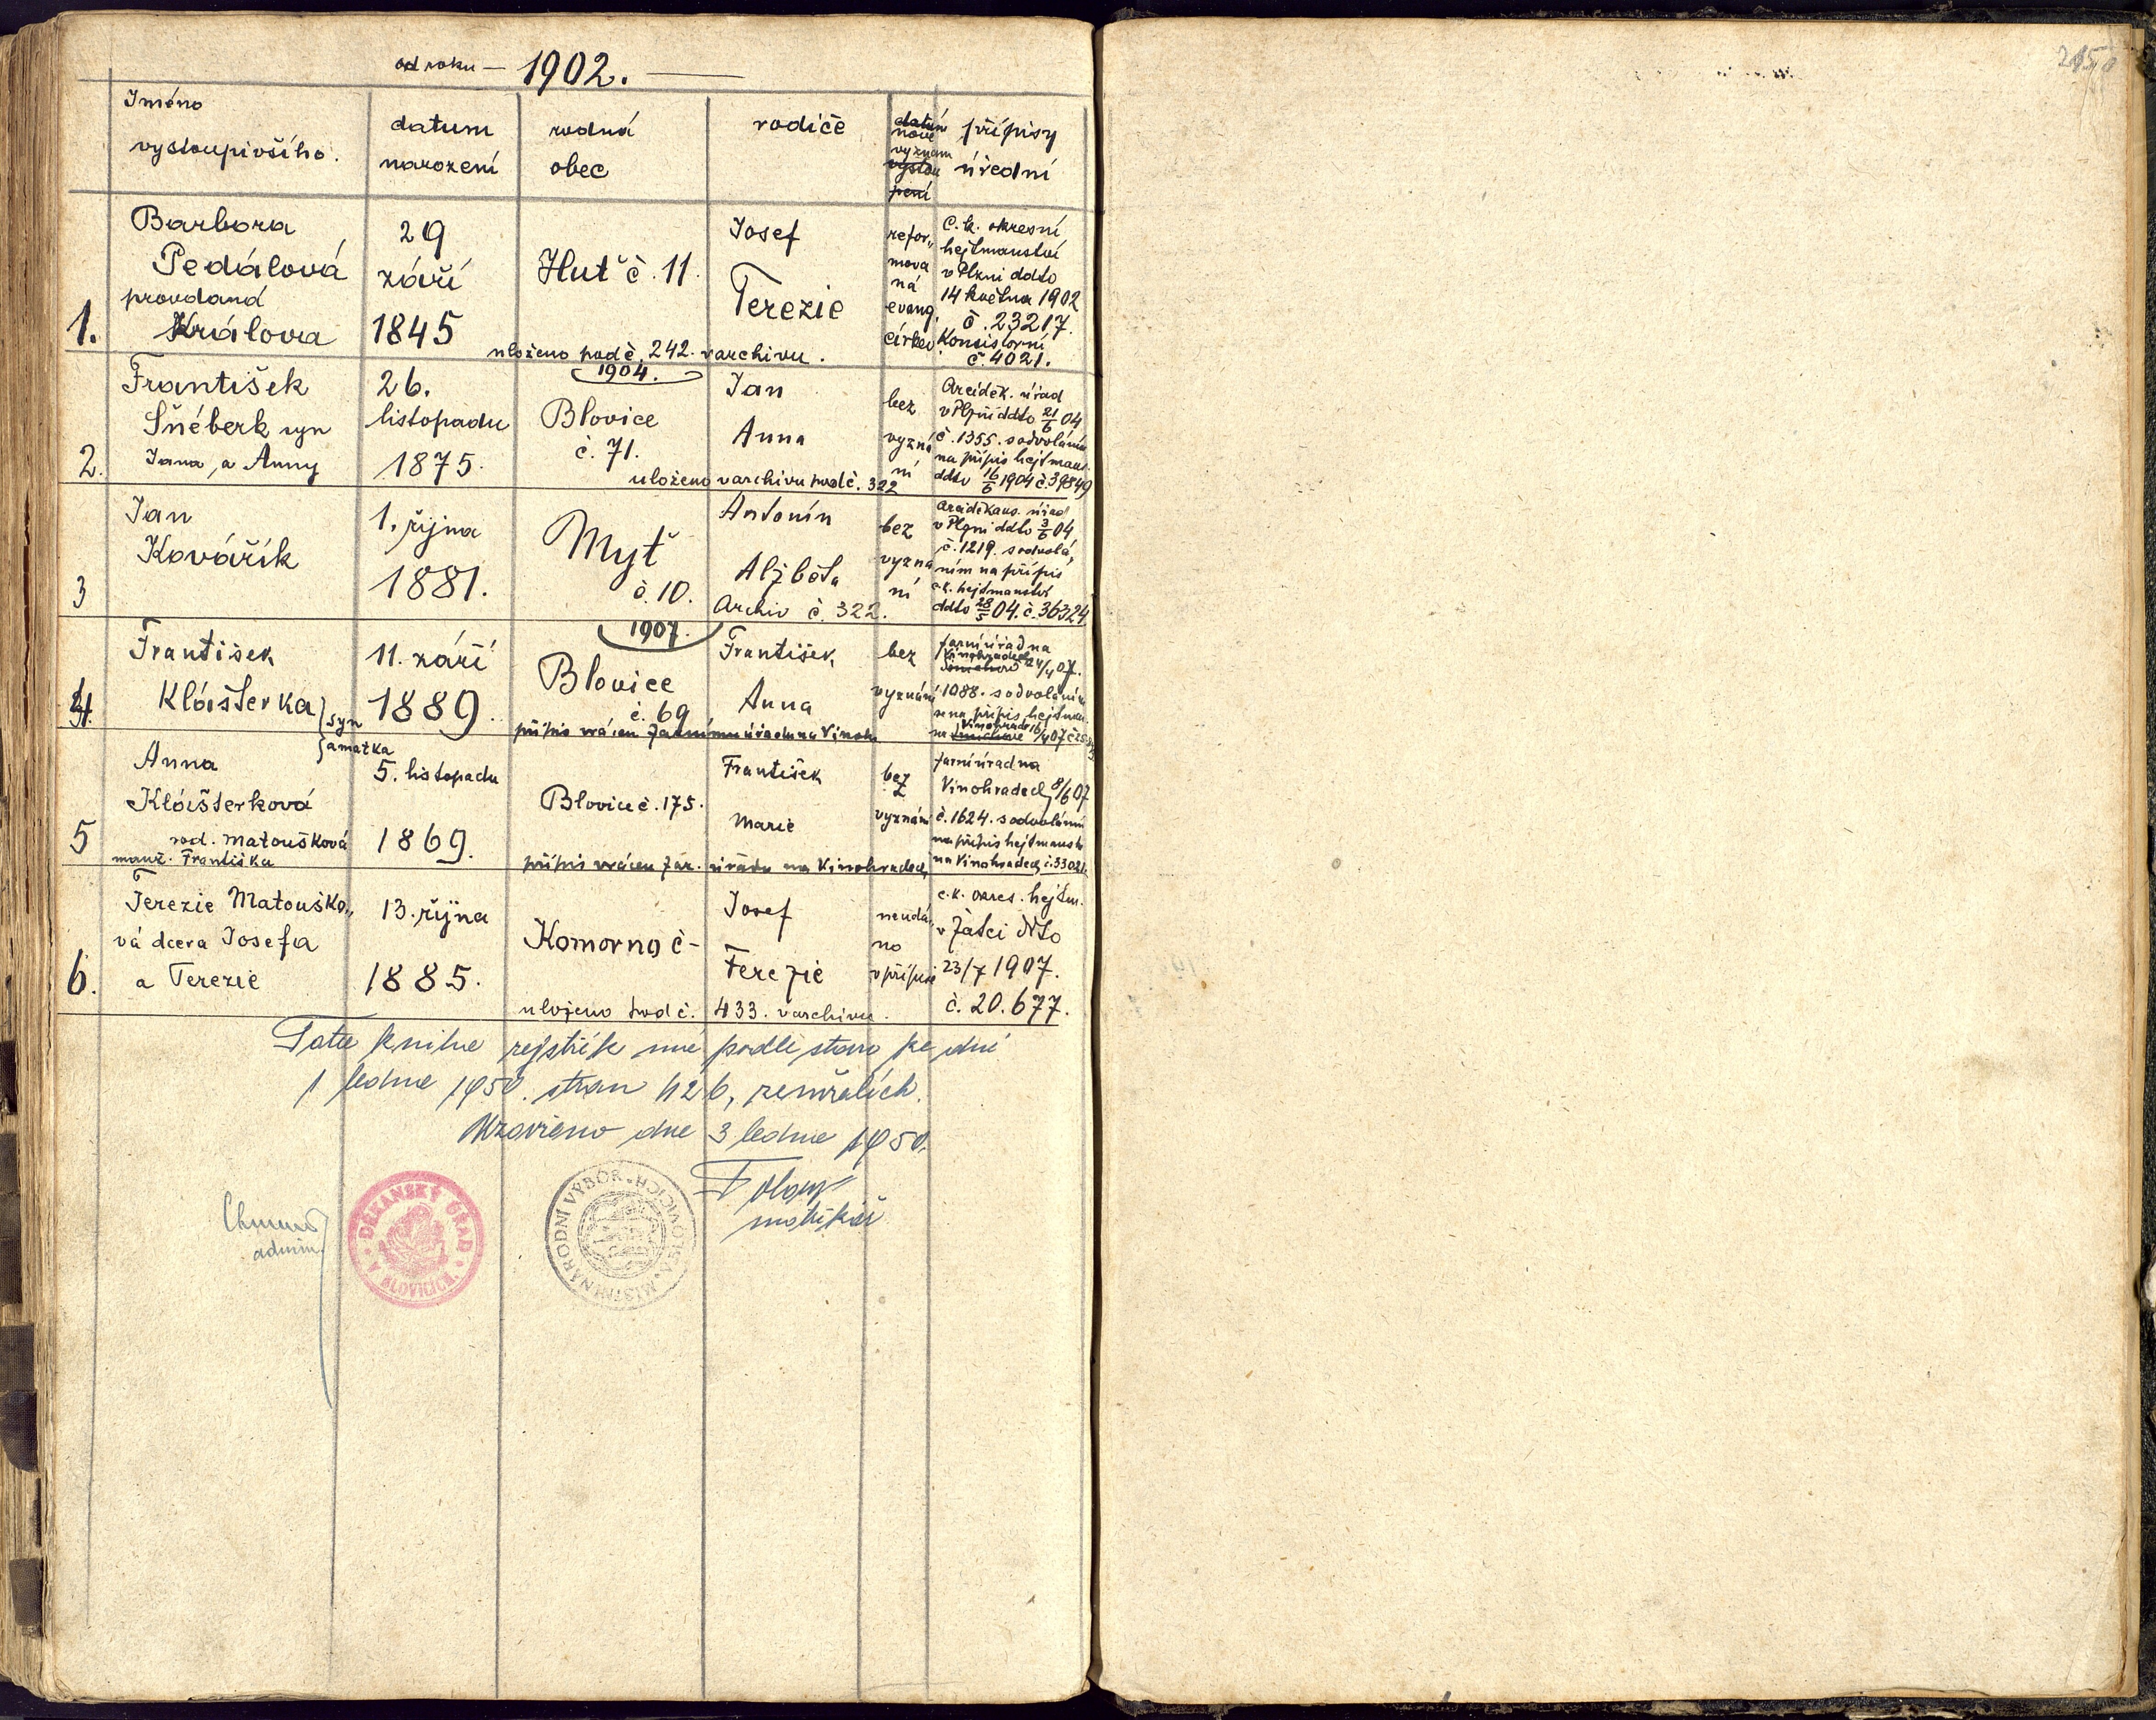 od roku — 1902. —
Jméno
vystoupivšího.
datum
narození
rodná
obec
rodiče
datum
nové
vyznám
vystou
pení
přípisy
úřední
1.
Barbora
Pedálová
provdaná
Králova
29
září
1845
Huť č. 11.
Josef
Terezie
refor„
mova
ná
evang.
církev
C. k. okresní
hejtmanství
v Plzni ddto
14 května 1902
č. 23217.
Konsistorní
č. 4021.
uloženo pod č. 242. v archivu.
1904.
2.
František
Šnéberk syn
Jana, a Anny
26.
listopadu
1875.
Blovice
č. 71.
Jan
Anna
bez
vyzná
ní
Arcidĕk. úřad
v Plzni ddto 21/6 04
č. 1355. s odvoláním
na přípis hejtman.
ddto 16/6 1904 č. 39849
uloženo v archivu pod č. 322
3
Jan
Kovářík
1. října
1881.
Myť
č. 10.
Antonín
Alžběta
bez
vyzna
ní
Arciděkans. úřad
v Plzni ddto 3/6 04
č. 1219. s odvolá„
ním na přípis
c. k. hejtmanství
ddto 28/5 04. č. 36324
Archiv č. 322.
1907.
4.
František
Klášterka } syn
11. září
1889.
Blovice
č. 69
František
Anna
bez
vyznání
farní úřad na
Vinohradech 24/4 07.
1088. s odvoláním
se na přípis hejtman.
na Vinohrade 16/4 07
přípis vrácen farnímu úřadu na Vinoh
{ a matka
5
Anna
Klášterková
rod. Matoušková
manž. Františka
5. listopadu
1869.
Blovice č. 175.
František
Marie
bez
vyznání
farní úřad na
Vinohradech 8/6 07
č. 1624. s odvoláním
na přípis hejtmanst
na Vinohradech č. 33021.
přípis vrácen far. úřadu na Vinohradech
6.
Terezie Matouško„
vá dcera Josefa
a Terezie
13. října
1885.
Komorno č -
Josef
Terezie
neudá„
no
v přípise
c. k. okres. hejtm.
v Žatci ddto
23/7 1907.
č. 20.677.
uloženo pod č. 433. v archivu.
Tato kniha rejstřík má podle stavu ke dni
1 ledna 1950. stran 426, zemřelích.
Uzavřeno dne 3 ledna 1950.
matrikář
admin.
DĚKANSKÝ ÚŘAD
V BLOVICÍCH.
MÍSTNÍ NÁRODNÍ VÝBOR
V BLOVICÍCH